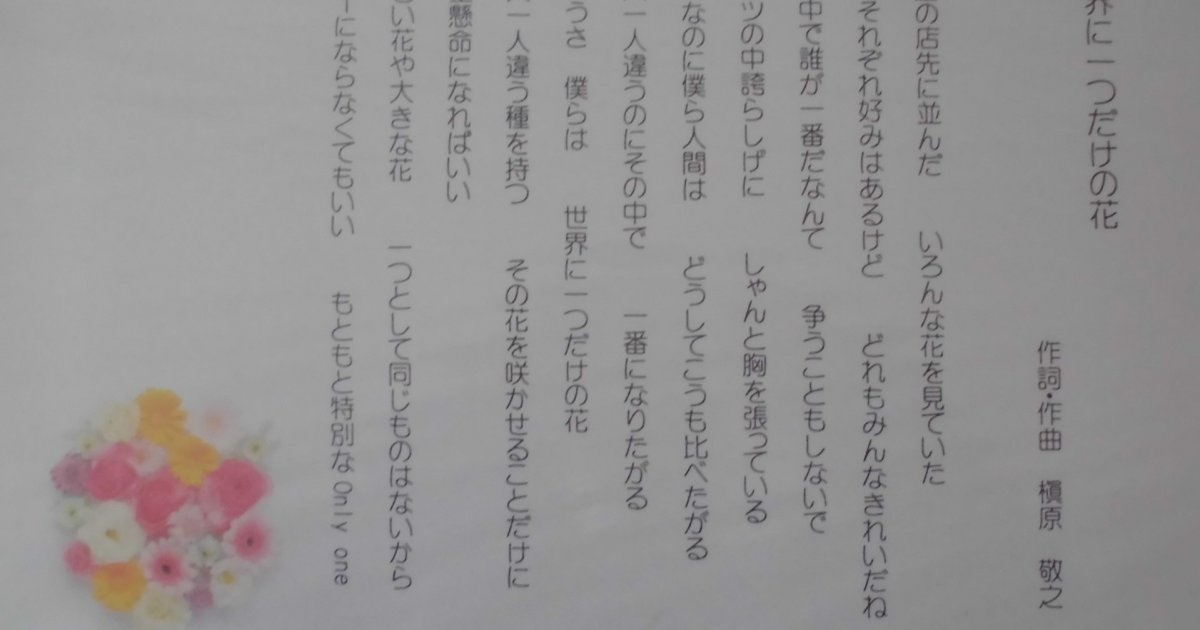 界に一つだけの花
作詞・作曲 槇原 敬之
の店先に並んだ いろんな花を見ていた
それぞれ好みはあるけど どれもみんなきれいだね
中で誰が一番だなんて 争うこともしないで
ツの中誇らしげに しゃんと胸を張っている
なのに僕ら人間は どうしてこうも比べたがる
一人違うのにその中で 一番になりたがる
うさ 僕らは 世界に一つだけの花
一人違う種を持つ その花を咲かせることだけに
懸命になればいい
い花や大きな花 一つとして同じものはないから
にならなくてもいい もともと特別な Only one